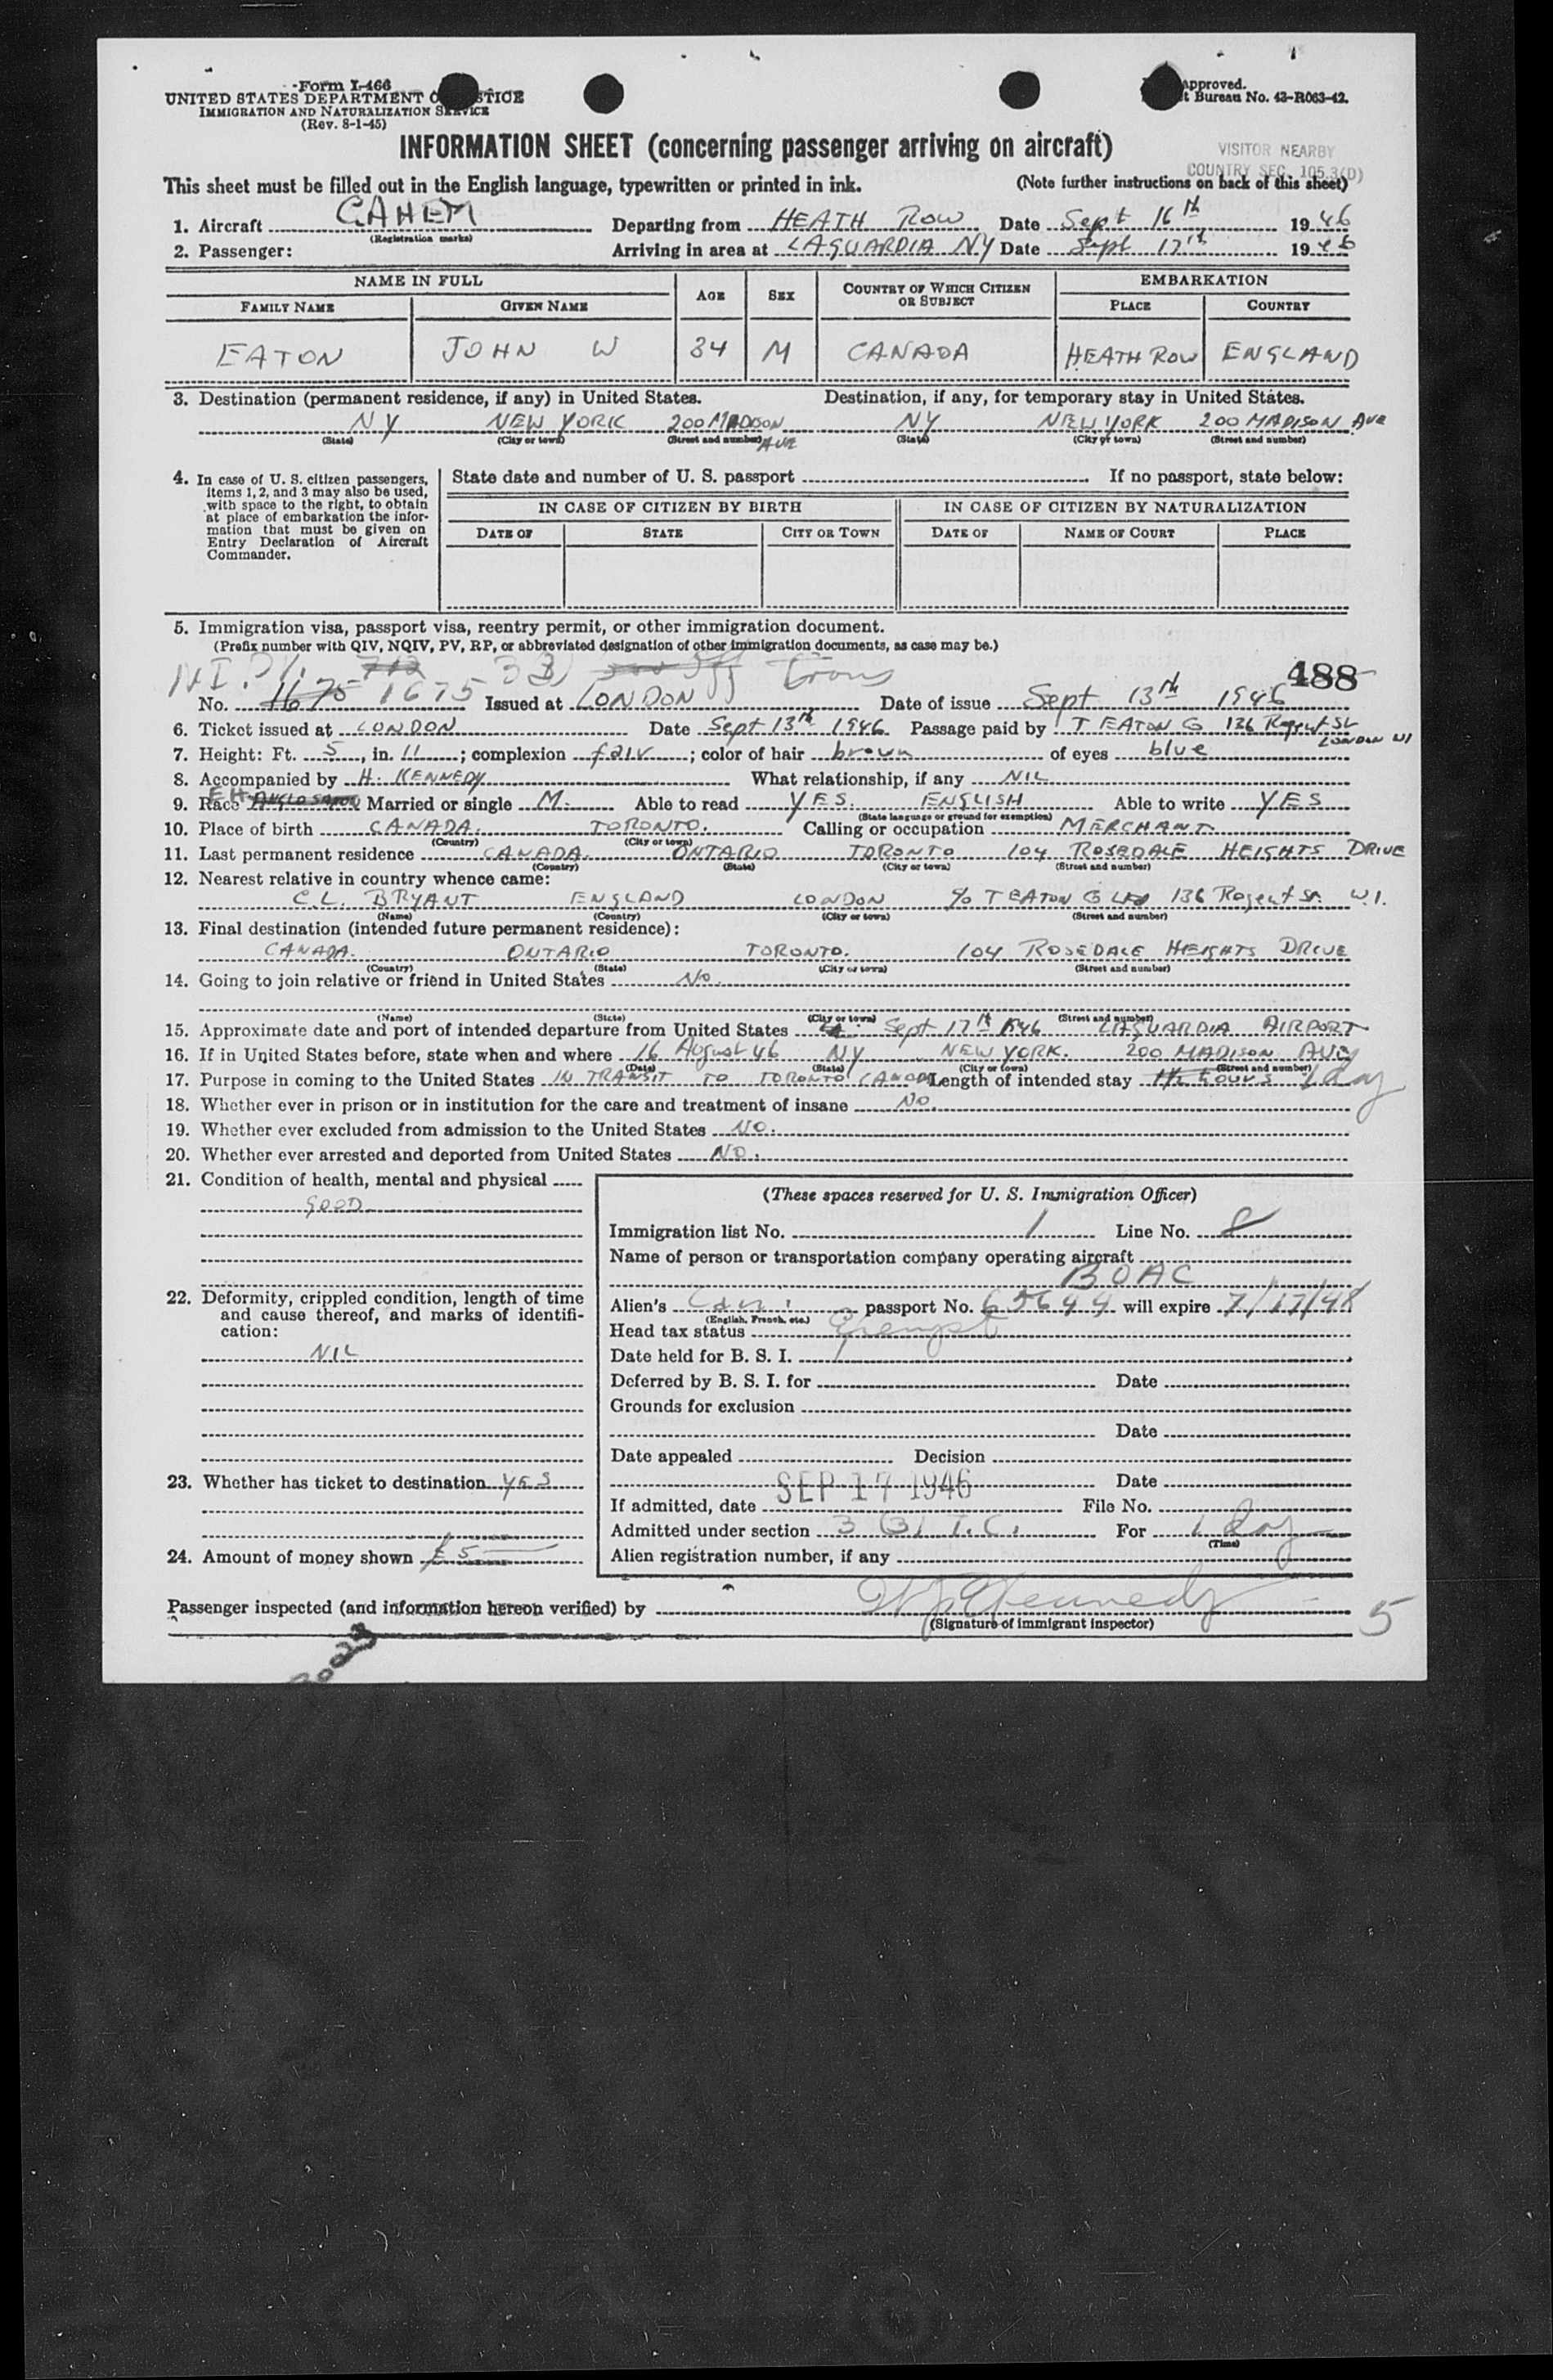 Form I-466
UNITED STATES DEPARTMENT O STICE
IMMIGRATION AND NATURALIZATION SERVICE
(Rev. 8-1-45)
approved.
t Bureau No. 43-R063-42.
INFORMATION SHEET (concerning passenger arriving on aircraft)
VISITOR NEARBY
COUNTRY SEC. 105.3(D)
This sheet must be filled out in the English language, typewritten or printed in ink. (Note further instructions on back of this sheet)
1. Aircraft GAHEM Departing from HEATH ROW Date Sept 16th 1946
(Registration marks)
2. Passenger: Arriving in area at LAGUARDIA NY Date Sept 17th 1946
NAME IN FULL AGE SEX COUNTRY OF WHICH CITIZEN OR SUBJECT EMBARKATION
FAMILY NAME GIVEN NAME PLACE COUNTRY
EATON JOHN W 34 M CANADA HEATH ROW ENGLAND
3. Destination (permanent residence, if any) in United States. Destination, if any, for temporary stay in United States.
NY NEW YORK 200 MADISON AVE NY NEW YORK 200 MADISON AVE
(State) (City or town) (Street and number) (State) (City or town) (Street and number)
4. In case of U. S. citizen passengers, items 1, 2, and 3 may also be used, with space to the right, to obtain at place of embarkation the information that must be given on Entry Declaration of Aircraft Commander.
State date and number of U. S. passport If no passport, state below:
IN CASE OF CITIZEN BY BIRTH IN CASE OF CITIZEN BY NATURALIZATION
DATE OF STATE CITY OR TOWN DATE OF NAME OF COURT PLACE
5. Immigration visa, passport visa, reentry permit, or other immigration document.
(Prefix number with QIV, NQIV, PV, RP, or abbreviated designation of other immigration documents, as case may be.)
488
No. 1675 1675 Issued at LONDON Date of issue Sept 13th 1946
6. Ticket issued at LONDON Date Sept 13th 1946 Passage paid by T EATON Co 136 Regent St LONDON W1
7. Height: Ft. 5, in. 11; complexion fair; color of hair brown of eyes blue
8. Accompanied by H. KENNEDY What relationship, if any NIL
9. Race ANGLO SAXON Married or single M. Able to read YES. ENGLISH Able to write YES
(State language or ground for exemption)
10. Place of birth CANADA. TORONTO. Calling or occupation MERCHANT.
(Country) (City or town)
11. Last permanent residence CANADA. ONTARIO TORONTO 104 ROSEDALE HEIGHTS DRIVE
(Country) (State) (City or town) (Street and number)
12. Nearest relative in country whence came:
C.L. BRYANT ENGLAND LONDON c/o T EATON Co Ltd 136 Regent St. W.1.
(Name) (Country) (City or town) (Street and number)
13. Final destination (intended future permanent residence):
CANADA. ONTARIO TORONTO. 104 ROSEDALE HEIGHTS DRIVE
(Country) (State) (City or town) (Street and number)
14. Going to join relative or friend in United States No.
(Name) (State) (City or town) (Street and number)
15. Approximate date and port of intended departure from United States Sept 17th 1946 LAGUARDIA AIRPORT
16. If in United States before, state when and where 16 August 46 NY NEW YORK. 200 MADISON AVE
(Date) (State) (City or town) (Street and number)
17. Purpose in coming to the United States IN TRANSIT TO TORONTO CANADA Length of intended stay 1½ hours 1 day
18. Whether ever in prison or in institution for the care and treatment of insane No.
19. Whether ever excluded from admission to the United States NO.
20. Whether ever arrested and deported from United States NO.
21. Condition of health, mental and physical
GOOD
22. Deformity, crippled condition, length of time and cause thereof, and marks of identification:
NIL
23. Whether has ticket to destination YES
24. Amount of money shown £5
(These spaces reserved for U. S. Immigration Officer)
Immigration list No. 1 Line No. 8
Name of person or transportation company operating aircraft
BOAC
Alien's Can. passport No. 65644 will expire 7/17/48
(English, French, etc.)
Head tax status Exempt
Date held for B. S. I.
Deferred by B. S. I. for Date
Grounds for exclusion
Date
Date appealed Decision
Date
If admitted, date SEP 17 1946 File No.
Admitted under section 3 (3) T.C. For 1 day
(Time)
Alien registration number, if any
Passenger inspected (and information hereon verified) by Kennedy
(Signature of immigrant inspector)
5